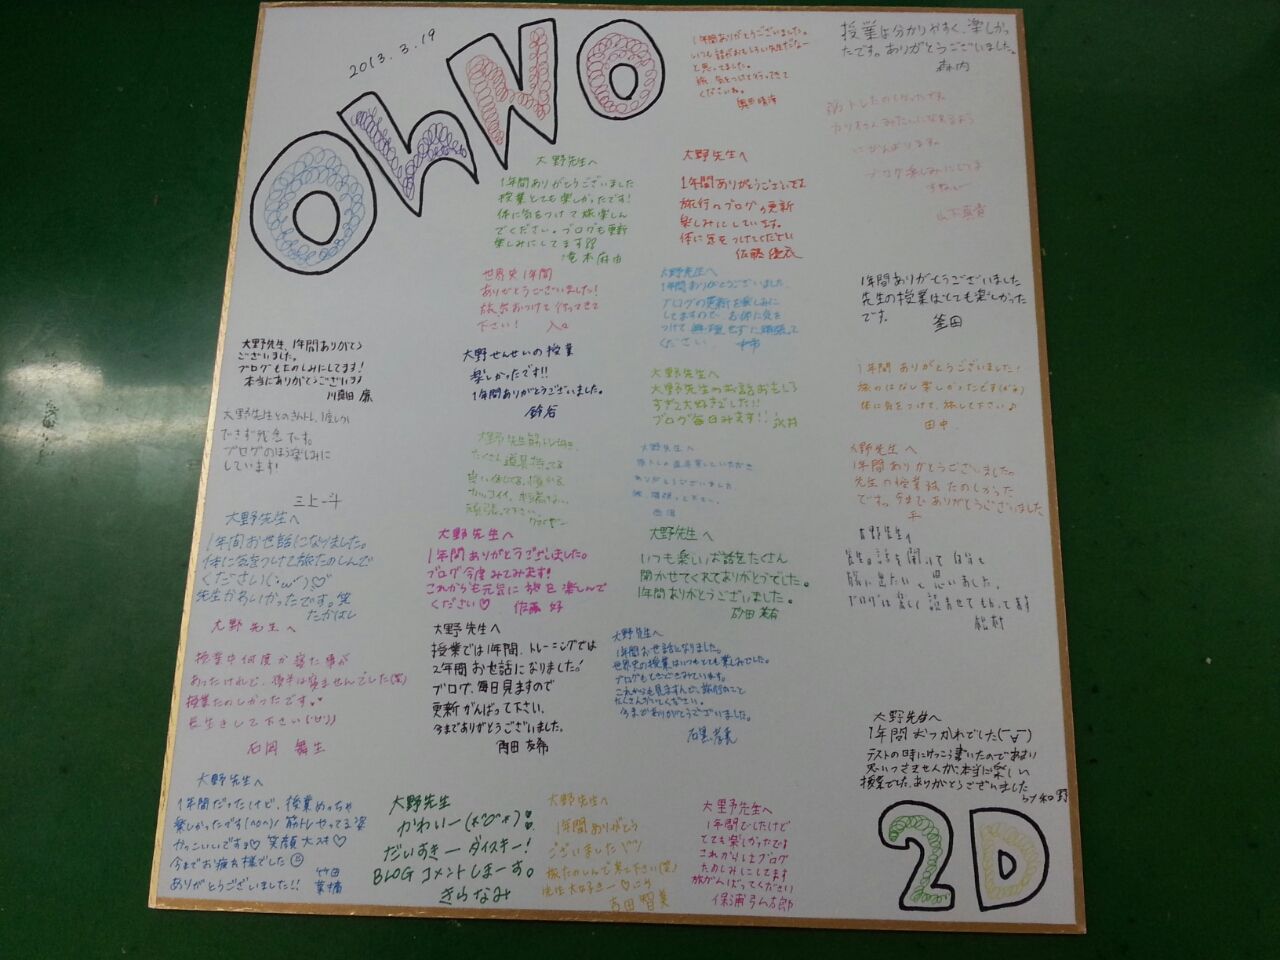 2013.3.19
OhNO
1年間ありがとうございました。
いつも話がおもしろい先生だなー
と思ってました。
旅、気をつけて行ってきて
くださいね。
授業も分かりやすく、楽しかっ
たです。ありがとうございました。
森内
筋トレたのしかったです。
がんばります。
ブログ楽しみにしてま
山下真資
大野先生へ
1年間ありがとうございました
授業とても楽しかったです!
体に気をつけて旅楽しん
でください。ブログも更新
楽しみにしてます
滝本麻由
大野先生へ
1年間ありがとうございます
旅行のブログの更新
楽しみにしています。
体に気をつけてください
佐藤優衣
世界史1年間
ありがとうございました!
旅気おつけて行ってきて
下さい!
大野先生へ
1年間ありがとうございました
ブログの更新を楽しみに
してますので、お体に気を
つけて無理せずに頑張って
ください
1年間ありがとうございました
先生の授業はとても楽しかった
です。
釜田
大野先生、1年間ありがとう
ございました。
ブログもたのしみにしてます!
本当にありがとうございます
大野せんせいの授業
楽しかったです!!
1年間ありがとうございました。
鈴谷
大野先生へ
大野先生のお話おもしろ
すぎて大好きでした!!
ブログ毎日みます!
永井
1年間ありがとうございました!
旅のはなし楽しかったです
体に気をつけて、旅して下さい♪
田中
大野先生とのきんトレ、1度しか
できず残念です。
ブログのほう楽しみに
しています!
三上一斗
大野先生筋トレ
たくさん道具持ってる
頑張って下さい。
大野先生へ
ありがとうございました
大野先生へ
1年間ありがとうございました。
先生の授業はたのしかった
です。今までありがとうございました
平
大野先生へ
1年間お世話になりました。
体に気をつけて旅たのしんで
ください(・ω・)♡
先生かわいかったです。笑
たかはし
大野先生へ
1年間ありがとうございました。
ブログ今度みてみます!
これからも元気に旅を楽しんで
ください♡
佐藤 好
大野先生へ
いつも楽しいお話をたくさん
聞かせてくれてありがとうでした。
1年間ありがとうございました。
砂田 英有
大野先生へ
先生の話を聞いて自分も
旅に出たいと思いました。
ブログは楽しく読ませてもらってます
松村
大野先生へ
授業中何度か寝た事が
あったけれど、後半は寝ませんでした(笑)
授業たのしかったです
長生きして下さい
石岡 舞生
大野先生へ
授業では1年間、トレーニングでは
2年間お世話になりました!
ブログ、毎日見ますので
更新がんばって下さい。
今までありがとうございました。
角田 友希
大野先生へ
1年間お世話になりました。
世界史の授業はいつもとても楽しみでした。
ブログもときどきみています。
これからも見ますんで、旅行のこと
たくさんかいてください。
今までありがとうございました。
大野先生へ
1年間おつかれでした
テストの時にけっこう書いたのであまり
思いつきませんが、本当に楽しい
授業でした。ありがとうございました
by 和野
大野先生へ
1年間だったけど、授業めっちゃ
楽しかったです(^o^)/ 筋トレやってる姿
かっこいいですョ♡ 笑顔大スキ♡
今までお疲れ様でした
ありがとうございました!!
竹田
菜摘
大野先生
かわいー
だいすきー ダイスキー!
BLOG コメントしまーす。
きらなみ
大野先生へ
1年間ありがとう
ございました
旅たのしんで来て下さい(笑)
吉田智美
大野先生へ
1年間でしたけど
とても楽しかったです
これからもブログ
たのしみにしてます
旅がんばってください
保浦弓太郎
2D